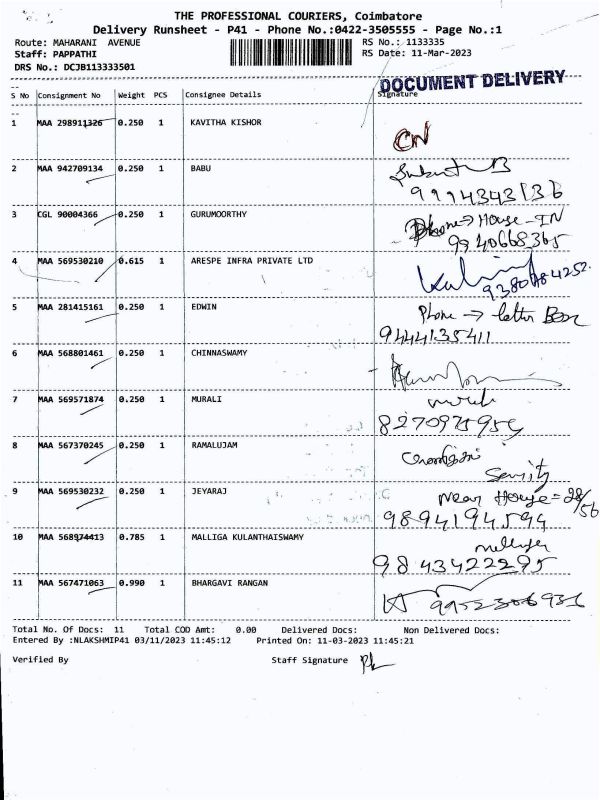 THE PROFESSIONAL COURIERS, Coimbatore
Delivery Runsheet - P41 - Phone No.:0422-3505555 - Page No.:1
Route: MAHARANI AVENUE RS No.: 1133335
Staff: PAPPATHI RS Date: 11-Mar-2023
DRS No.: DCJB113333501
DOCUMENT DELIVERY
S No Consignment No Weight PCS Consignee Details Signature
1 MAA 298911326 0.250 1 KAVITHA KISHOR
CN
2 MAA 942709134 0.250 1 BABU
9994343136
3 CGL 90004366 0.250 1 GURUMOORTHY
Phone → House - IN
9940668365
4 MAA 569530210 0.615 1 ARESPE INFRA PRIVATE LTD
5 MAA 281415161 0.250 1 EDWIN
Phone → letter Box
9444135411
6 MAA 568801461 0.250 1 CHINNASWAMY
7 MAA 569571874 0.250 1 MURALI
murali
8270975959
8 MAA 567370245 0.250 1 RAMALUJAM
9 MAA 569530232 0.250 1 JEYARAJ
Near House = 28/56
9894194594
10 MAA 568974413 0.785 1 MALLIGA KULANTHAISWAMY
9843422295
11 MAA 567471063 0.990 1 BHARGAVI RANGAN
9952306931
Total No. Of Docs: 11 Total COD Amt: 0.00 Delivered Docs: Non Delivered Docs:
Entered By :NLAKSHMIP41 03/11/2023 11:45:12 Printed On: 11-03-2023 11:45:21
Verified By Staff Signature